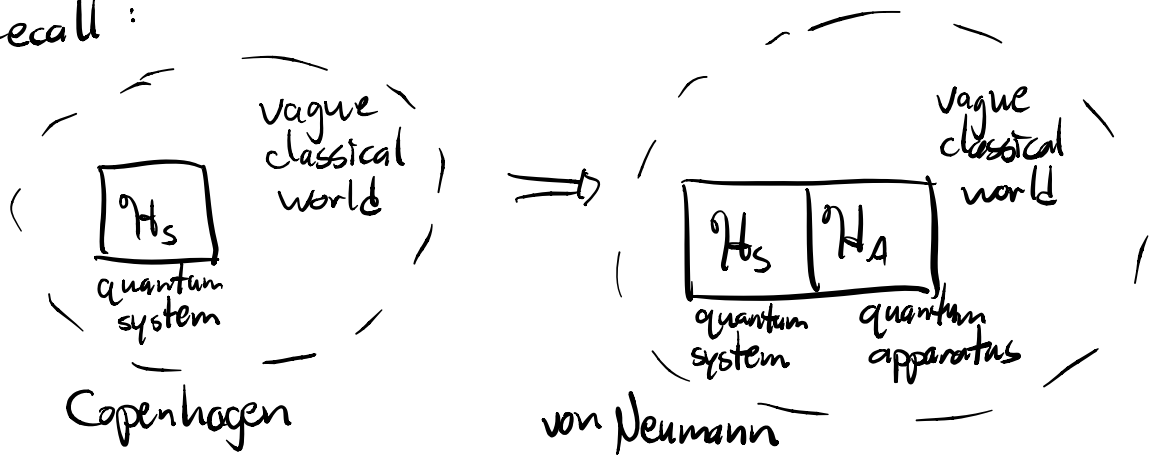 ecall :
vague
classical
world
H_S
quantum
system
Copenhagen
vague
classical
world
H_S H_A
quantum quantum
system apparatus
von Neumann